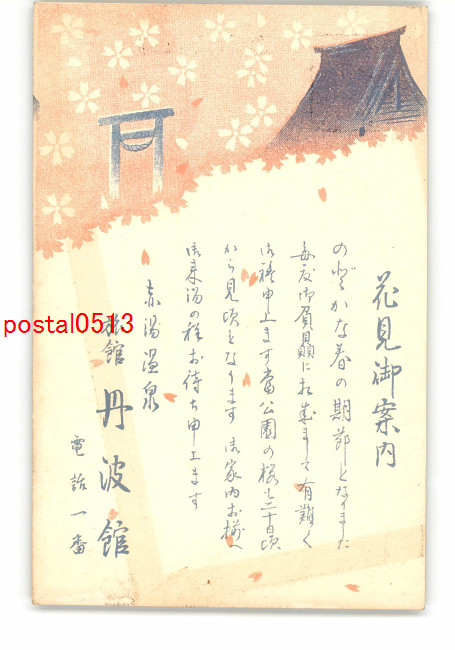 花見御案内
のどかな春の期節となりました
毎度御贔顧に相成まして有難く
御礼申上ます當公園の桜も二十日頃
から見頃となります 御家内お揃へ
御来湯の程お待ち申上ます
赤湯温泉
旅館 丹波館
電話一番
postal0513